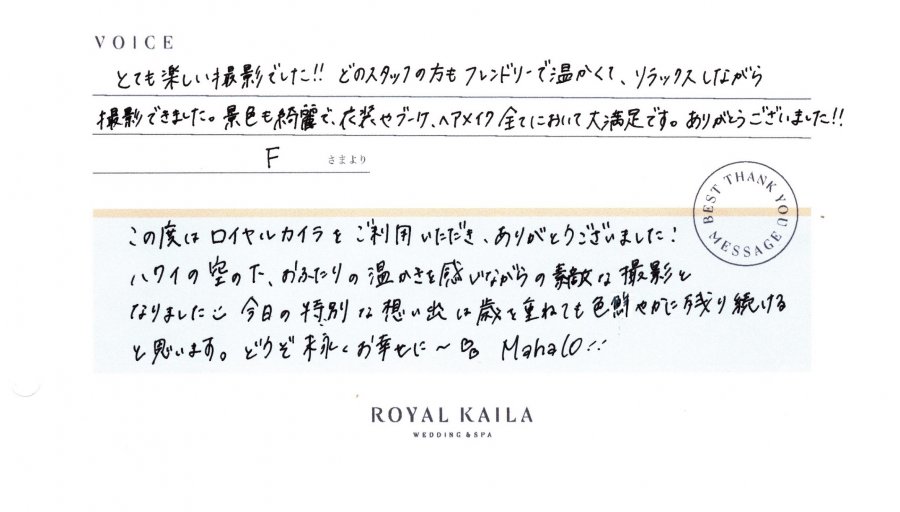 VOICE
とても楽しい撮影でした!! どのスタッフの方もフレンドリーで温かくて、リラックスしながら
撮影できました。景色も綺麗で、衣装やブーケ、ヘアメイク全てにおいて大満足です。ありがとうございました!!
F さまより
BEST THANK YOU MESSAGE
この度はロイヤルカイラをご利用いただき、ありがとうございました!
ハワイの空の下、おふたりの温かさを感じながらの素敵な撮影と
なりました 今日の特別な想い出は歳を重ねても色鮮やかに残り続ける
と思います。どうぞ末永くお幸せに〜 Mahalo!!
ROYAL KAILA
WEDDING & SPA